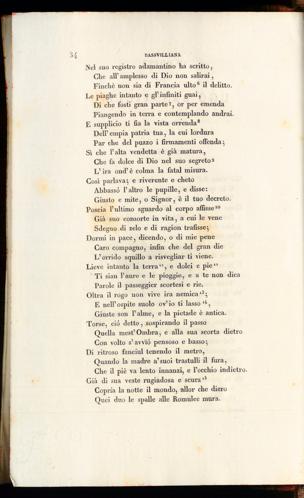 34
BASSVILLIANA
Nel suo registro adamantino ha scritto,
Che all'amplesso di Dio non salirai,
Finchè non sia di Francia ulto⁶ il delitto.
Le piaghe intanto e gl'infiniti guai,
Di che fosti gran parte⁷, or per emenda
Piangendo in terra e contemplando andrai.
E supplicio ti fia la vista orrenda⁸
Dell'empia patria tua, la cui lordura
Par che del puzzo i firmamenti offenda;
Sì che l'alta vendetta è già matura,
Che fa dolce di Dio nel suo segreto⁹
L'ira ond'è colma la fatal misura.
Così parlava; e riverente e cheto
Abbassò l'altro le pupille, e disse:
Giusto e mite, o Signor, è il tuo decreto.
Poscia l'ultimo sguardo al corpo affisse¹⁰
Già suo consorte in vita, a cui le vene
Sdegno di zelo e di ragion trafisse;
Dormi in pace, dicendo, o di mie pene
Caro compagno, infin che del gran die
L'orrido squillo a risvegliar ti viene.
Lieve intanto la terra¹¹, e dolci e pie¹²
Ti sian l'aure e le pioggie, e a te non dica
Parole il passeggier scortesi e rie.
Oltra il rogo non vive ira nemica¹³;
E nell'ospite suolo ov'io ti lasso¹⁴,
Giuste son l'alme, e la pietade è antica.
Torse, ciò detto, sospirando il passo
Quella mest'Ombra, e alla sua scorta dietro
Con volto s'avviò pensoso e basso;
Di ritroso fanciul tenendo il metro,
Quando la madre a'suoi trastulli il fura,
Che il piè va lento innanzi, e l'occhio indietro.
Già di sua veste rugiadosa e scura¹⁵
Copria la notte il mondo, allor che diero
Quei duo le spalle alle Romulee mura.